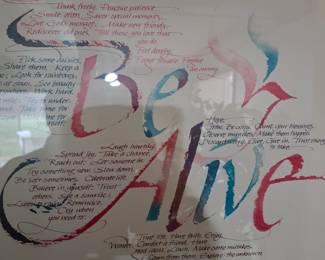 Think freely. Practice patience.
Smile often. Savor special moments.
Make new friends.
Rediscover old ones. Tell those you love that
you do.
Feel deeply.
Forget trouble. Forgive
an enemy.
Pick some daisies.
Share them. Keep a
Look for rainbows.
Be
Hope.
Grow. Be crazy. Count your blessings.
Observe miracles. Make them happen.
Discard worry. Give. Give in. Trust enough
to take.
Laugh heartily.
Spread joy. Take a chance.
Reach out. Let someone in.
Try something new. Slow down.
Be soft sometimes. Celebrate life.
Believe in yourself. Trust
others. See a sunrise.
Listen to rain. Reminisce.
Cry when
you need to.
Alive
Trust life. Have faith. Enjoy
Wonder. Comfort a friend. Have
good ideas. Learn. Make some mistakes.
Learn from them. Explore the unknown.